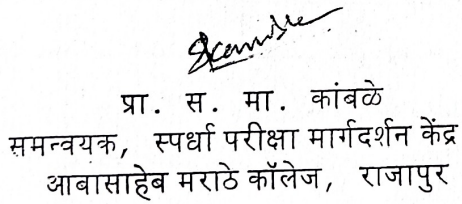 प्रा. स. मा. कांबळे
समन्वयक, स्पर्धा परीक्षा मार्गदर्शन केंद्र
आबासाहेब मराठे कॉलेज, राजापुर